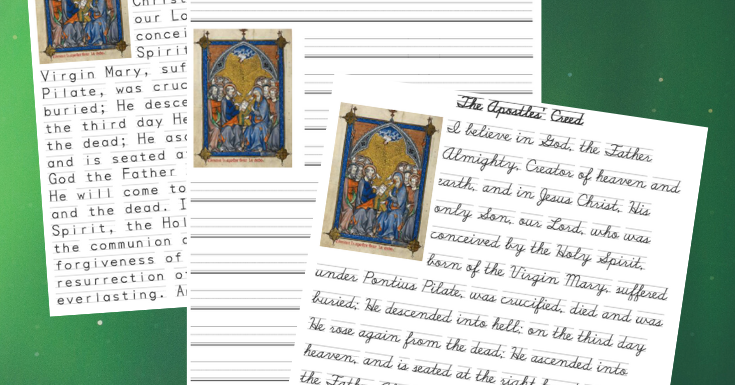 Christ
our Lo
concei
Spirit
Virgin Mary, suf
Pilate, was cruc
buried; He desce
the third day He
the dead; He asc
and is seated a
God the Father
He will come to
and the dead. I
Spirit, the Hol
the communion o
forgiveness of
resurrection of
everlasting. A
The Apostles' Creed
I believe in God, the Father
Almighty, Creator of heaven and
earth, and in Jesus Christ, His
only Son, our Lord, who was
conceived by the Holy Spirit,
born of the Virgin Mary, suffered
under Pontius Pilate, was crucified, died and was
buried; He descended into hell; on the third day
He rose again from the dead; He ascended into
heaven, and is seated at the right hand
the Father